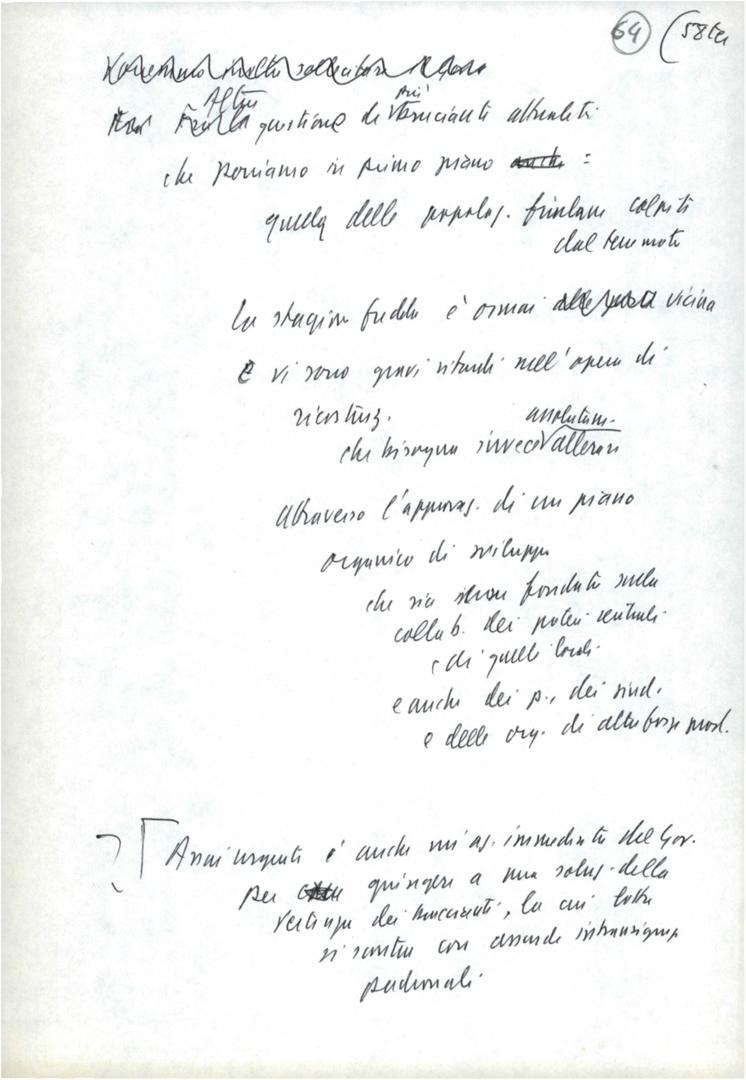 64 (58ter
Altra
più
questione di brucianti attualità
che poniamo in primo piano anche =
quella delle popolaz. friulane colpite
dal terremoto
la stagione fredda è ormai alle porte vicina
E vi sono gravi ritardi nell'opera di
ricostruz.
assolutam.
che bisogna invece accelerare
Attraverso l'approvaz. di un piano
organico di sviluppo
che sia fondato sulla
collab. dei poteri centrali
e di quelli locali
e anche dei p., dei sind.
e delle org. di altre forze prod.
? Assai urgente è anche un'az. immediata del Gov.
per giungere a una soluz. della
vertenza dei braccianti, la cui lotta
si scontra con assurde intransigenze
padronali